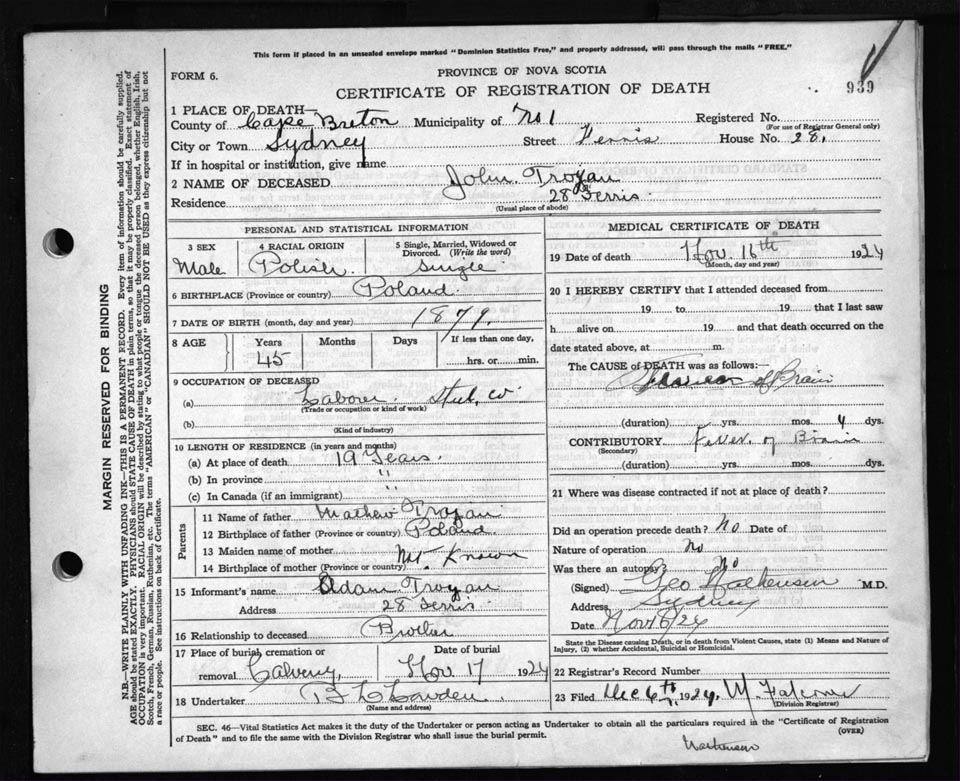 This form if placed in an unsealed envelope marked "Dominion Statistics Free," and properly addressed, will pass through the mails "FREE."
FORM 6.
PROVINCE OF NOVA SCOTIA
939
CERTIFICATE OF REGISTRATION OF DEATH
1 PLACE OF DEATH—
County of Cape Breton Municipality of No 1 Registered No.
(For use of Registrar General only)
City or Town Sydney Street Ferris House No. 28.
If in hospital or institution, give name
2 NAME OF DECEASED John Trojan
Residence 28 Ferris
(Usual place of abode)
PERSONAL AND STATISTICAL INFORMATION
3 SEX 4 RACIAL ORIGIN 5 Single, Married, Widowed or Divorced. (Write the word)
Male Polish Single
6 BIRTHPLACE (Province or country) Poland
7 DATE OF BIRTH (month, day and year) 1879.
8 AGE Years Months Days If less than one day,
45 hrs. or min.
9 OCCUPATION OF DECEASED
(a) Laborer Steel, co
(Trade or occupation or kind of work)
(b)
(Kind of industry)
10 LENGTH OF RESIDENCE (in years and months)
(a) At place of death 19 Years.
(b) In province "
(c) In Canada (if an immigrant) "
Parents
11 Name of father Mathew Trojan
12 Birthplace of father (Province or country) Poland
13 Maiden name of mother Not Known
14 Birthplace of mother (Province or country)
15 Informant's name Adam Trojan
Address 28 Ferris
16 Relationship to deceased Brother
17 Place of burial, cremation or removal Date of burial
Calvery Nov. 17 1924
18 Undertaker
(Name and address)
MEDICAL CERTIFICATE OF DEATH
19 Date of death Nov. 16th 1924
(Month, day and year)
20 I HEREBY CERTIFY that I attended deceased from
19 to 19 that I last saw
h alive on 19 and that death occurred on the
date stated above, at m.
The CAUSE of DEATH was as follows:—
of Brain
(duration) yrs. mos. 4 dys.
CONTRIBUTORY Fever of Brain
(Secondary)
(duration) yrs. mos. dys.
21 Where was disease contracted if not at place of death?
Did an operation precede death? No Date of
Nature of operation No
Was there an autopsy? No
(Signed) Geo M.D.
Address Sydney
Date Nov 16/24
State the Disease causing Death, or in death from Violent Causes, state (1) Means and Nature of Injury, (2) whether Accidental, Suicidal or Homicidal.
22 Registrar's Record Number
23 Filed Dec 6th 1924
(Division Registrar)
SEC. 46—Vital Statistics Act makes it the duty of the Undertaker or person acting as Undertaker to obtain all the particulars required in the "Certificate of Registration
of Death" and to file the same with the Division Registrar who shall issue the burial permit.
(OVER)
MARGIN RESERVED FOR BINDING
N.B.—WRITE PLAINLY WITH UNFADING INK—THIS IS A PERMANENT RECORD. Every item of information should be carefully supplied.
AGE should be stated EXACTLY. PHYSICIANS should STATE CAUSE OF DEATH in plain terms, so that it may be properly classified. Exact statement of
OCCUPATION is very important. RACIAL ORIGIN will be described by stating to what people or tongue the deceased person belonged, whether English, Irish,
Scotch, French, German, Russian, Ruthenian, etc. The terms "AMERICAN" or "CANADIAN" SHOULD NOT BE USED as they express citizenship but not
a race or people. See instructions on back of Certificate.